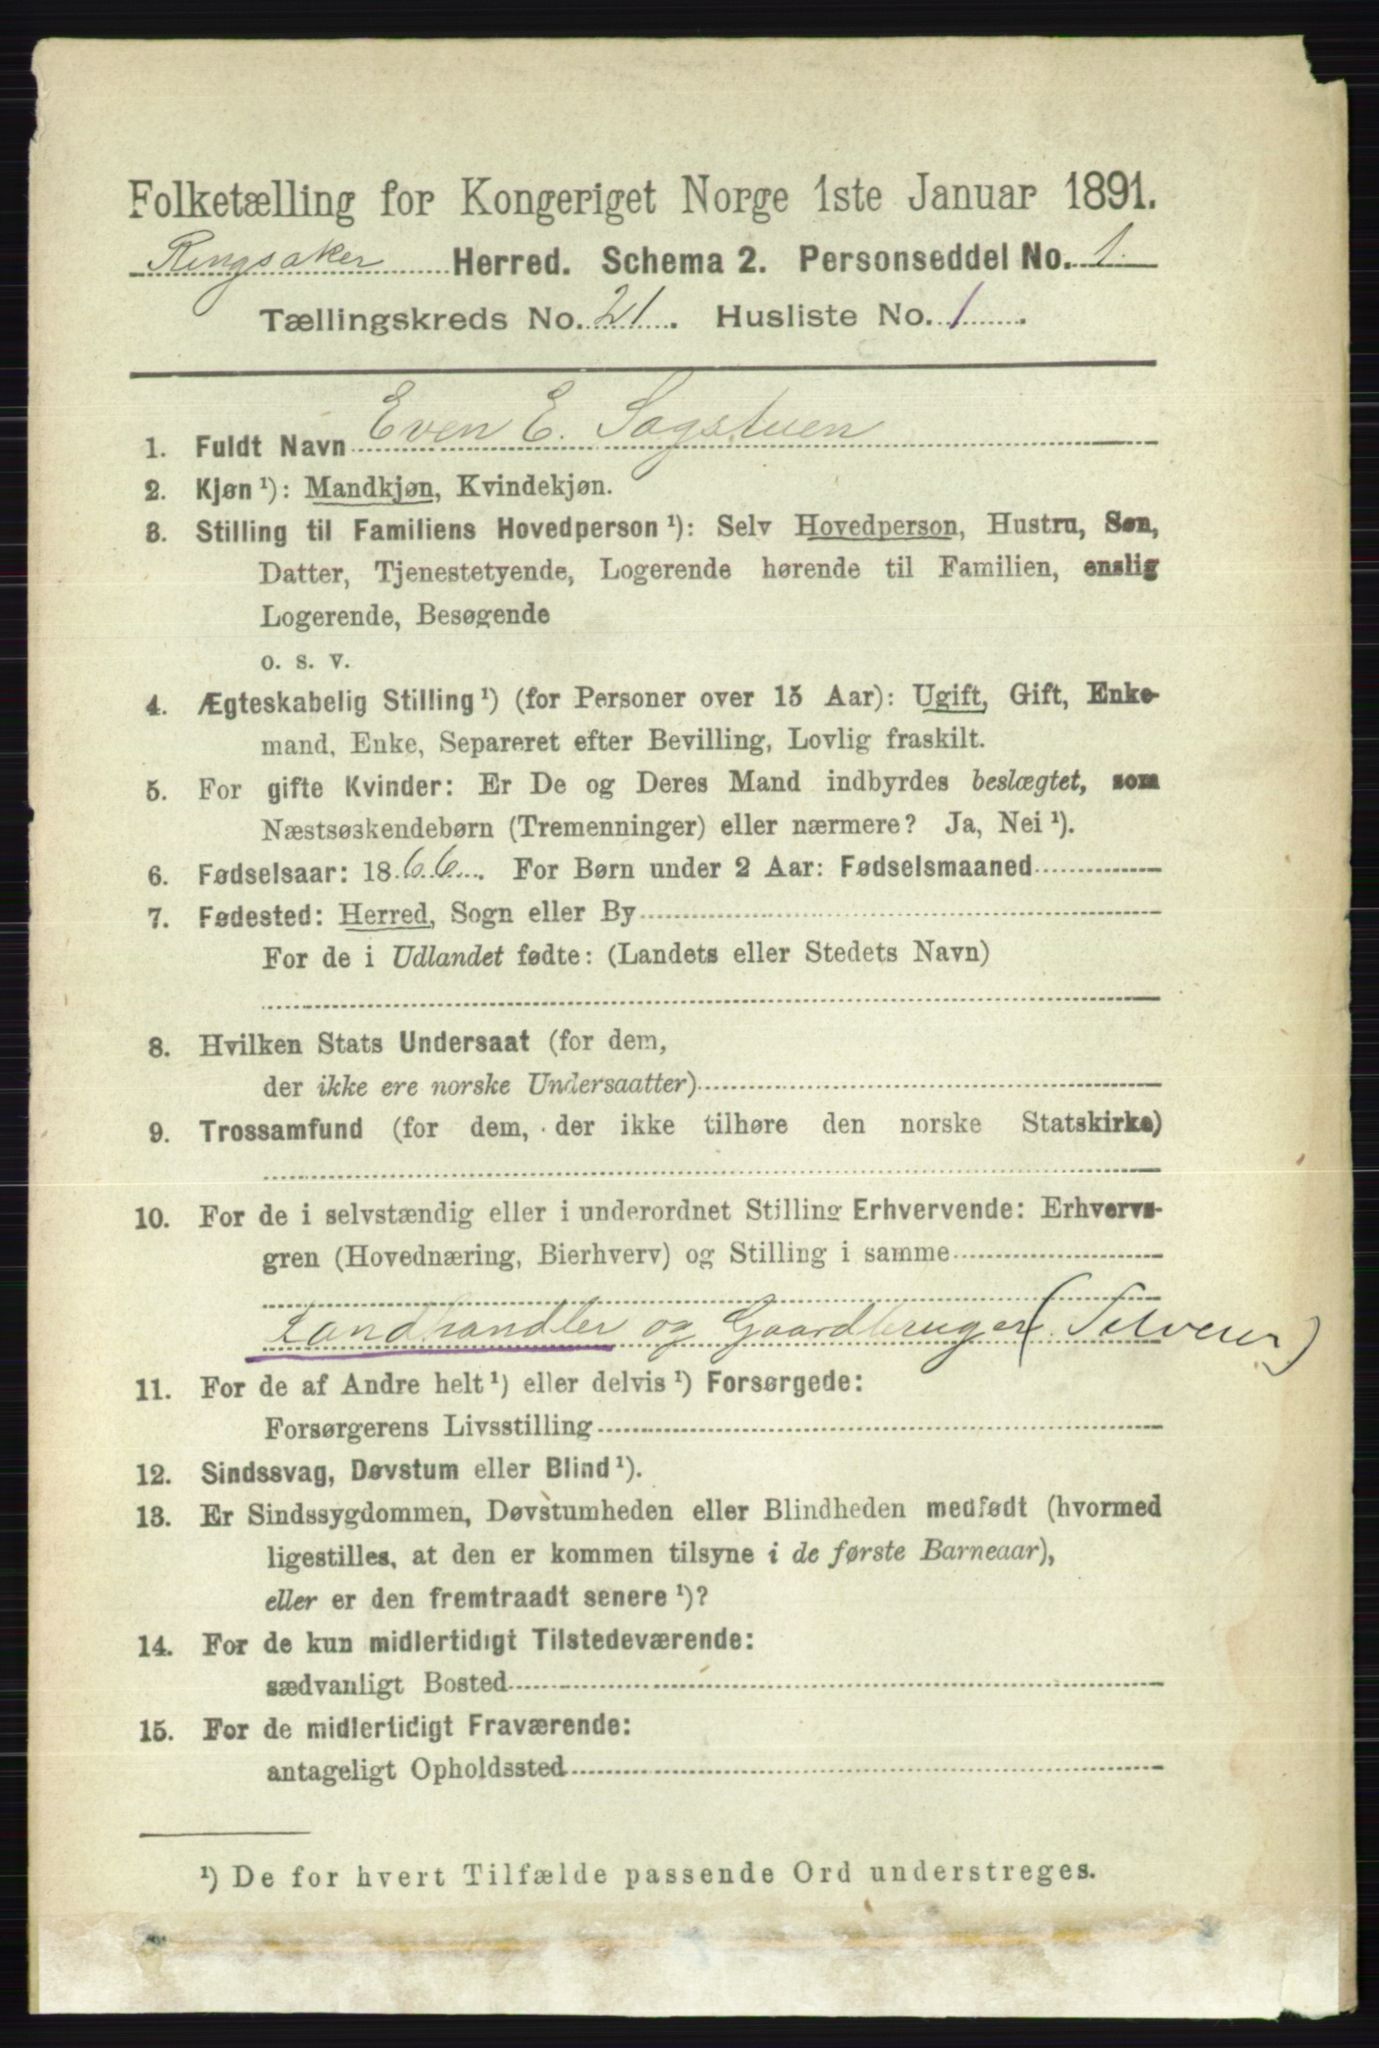 Folketælling for Kongeriget Norge 1ste Januar 1891.
Ringsaker Herred. Schema 2. Personseddel No. 1.
Tællingskreds No. 21. Husliste No. 1.
1. Fuldt Navn Even E. Sagstuen
2. Kjøn ¹): Mandkjøn, Kvindekjøn.
3. Stilling til Familiens Hovedperson ¹): Selv Hovedperson, Hustru, Søn,
Datter, Tjenestetyende, Logerende hørende til Familien, enslig
Logerende, Besøgende
o. s. v.
4. Ægteskabelig Stilling ¹) (for Personer over 15 Aar): Ugift, Gift, Enke-
mand, Enke, Separeret efter Bevilling, Lovlig fraskilt.
5. For gifte Kvinder: Er De og Deres Mand indbyrdes beslægtet, som
Næstsøskendebørn (Tremenninger) eller nærmere? Ja, Nei ¹).
6. Fødselsaar: 1866. For Børn under 2 Aar: Fødselsmaaned
7. Fødested: Herred, Sogn eller By
For de i Udlandet fødte: (Landets eller Stedets Navn)
8. Hvilken Stats Undersaat (for dem,
der ikke ere norske Undersaatter)
9. Trossamfund (for dem, der ikke tilhøre den norske Statskirke)
10. For de i selvstændig eller i underordnet Stilling Erhvervende: Erhvervs-
gren (Hovednæring, Bierhverv) og Stilling i samme
Landhandler og Gaardbruger (Selveier)
11. For de af Andre helt ¹) eller delvis ¹) Forsørgede:
Forsørgerens Livsstilling
12. Sindssvag, Døvstum eller Blind ¹).
13. Er Sindssygdommen, Døvstumheden eller Blindheden medfødt (hvormed
ligestilles, at den er kommen tilsyne i de første Barneaar),
eller er den fremtraadt senere ¹)?
14. For de kun midlertidigt Tilstedeværende:
sædvanligt Bosted
15. For de midlertidigt Fraværende:
antageligt Opholdssted
¹) De for hvert Tilfælde passende Ord understreges.